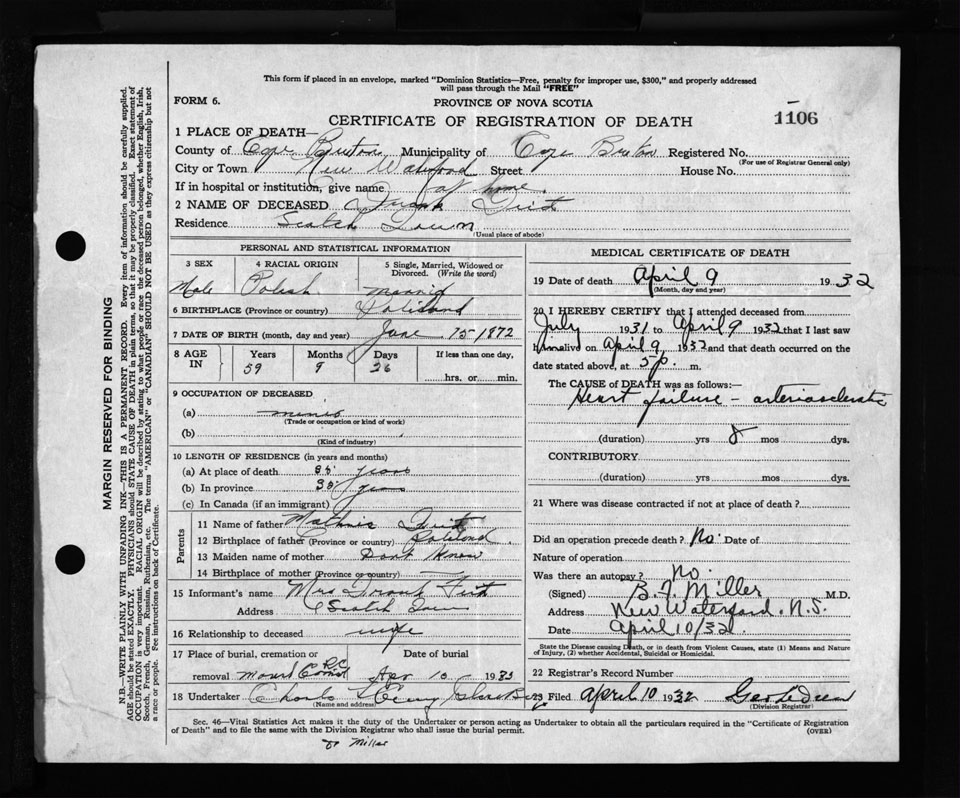 This form if placed in an envelope, marked "Dominion Statistics—Free, penalty for improper use, $300," and properly addressed
will pass through the Mail "FREE"
FORM 6.
PROVINCE OF NOVA SCOTIA
CERTIFICATE OF REGISTRATION OF DEATH
1106
1 PLACE OF DEATH—
County of Cape Breton Municipality of Cape Breton Registered No.
(For use of Registrar General only)
City or Town New Waterford Street House No.
If in hospital or institution, give name at home.
2 NAME OF DECEASED Frank
Residence Scotch Town
(Usual place of abode)
PERSONAL AND STATISTICAL INFORMATION
3 SEX 4 RACIAL ORIGIN 5 Single, Married, Widowed or Divorced. (Write the word)
Male Polish
6 BIRTHPLACE (Province or country)
7 DATE OF BIRTH (month, day and year) June 15-1872
8 AGE IN Years Months Days If less than one day,
59 9 26 hrs. or min.
9 OCCUPATION OF DECEASED
(a)
(Trade or occupation or kind of work)
(b)
(Kind of industry)
10 LENGTH OF RESIDENCE (in years and months)
(a) At place of death years
(b) In province years
(c) In Canada (if an immigrant)
Parents
11 Name of father
12 Birthplace of father (Province or country)
13 Maiden name of mother Dont Know
14 Birthplace of mother (Province or country)
15 Informant's name Mrs Frank
Address Scotch Town
16 Relationship to deceased wife
17 Place of burial, cremation or removal Date of burial
R C
Mount Apr 10- 19
18 Undertaker Charles
(Name and address)
MEDICAL CERTIFICATE OF DEATH
19 Date of death April 9 1932
(Month, day and year)
20 I HEREBY CERTIFY that I attended deceased from
July 1931 to April 9 1932 that I last saw
him alive on April 9 1932 and that death occurred on the
date stated above, at 5 p. m.
The CAUSE of DEATH was as follows:
Heart failure - arteriosclerotic
(duration) yrs 8 mos dys.
CONTRIBUTORY
(duration) yrs mos dys.
21 Where was disease contracted if not at place of death?
Did an operation precede death? No. Date of
Nature of operation
Was there an autopsy? No.
(Signed) B. F. Miller M.D.
Address New Waterford. N.S.
Date April 10/32.
State the Disease causing Death, or in death from Violent Causes, state (1) Means and Nature
of Injury, (2) whether Accidental, Suicidal or Homicidal.
22 Registrar's Record Number
23 Filed April 10 1932
(Division Registrar)
Sec. 46—Vital Statistics Act makes it the duty of the Undertaker or person acting as Undertaker to obtain all the particulars required in the "Certificate of Registration
of Death" and to file the same with the Division Registrar who shall issue the burial permit.
(OVER)
Dr Miller
MARGIN RESERVED FOR BINDING
N.B.—WRITE PLAINLY WITH UNFADING INK—THIS IS A PERMANENT RECORD. Every item of information should be carefully supplied.
AGE should be stated EXACTLY. PHYSICIANS should STATE CAUSE OF DEATH in plain terms, so that it may be properly classified. Exact statement of
OCCUPATION is very important. RACIAL ORIGIN will be described by stating to what people or race the deceased person belonged, whether English, Irish,
Scotch, French, German, Russian, Ruthenian, etc. The terms "AMERICAN" or "CANADIAN" SHOULD NOT BE USED as they express citizenship but not
a race or people. Fee instructions on back of Certificate.